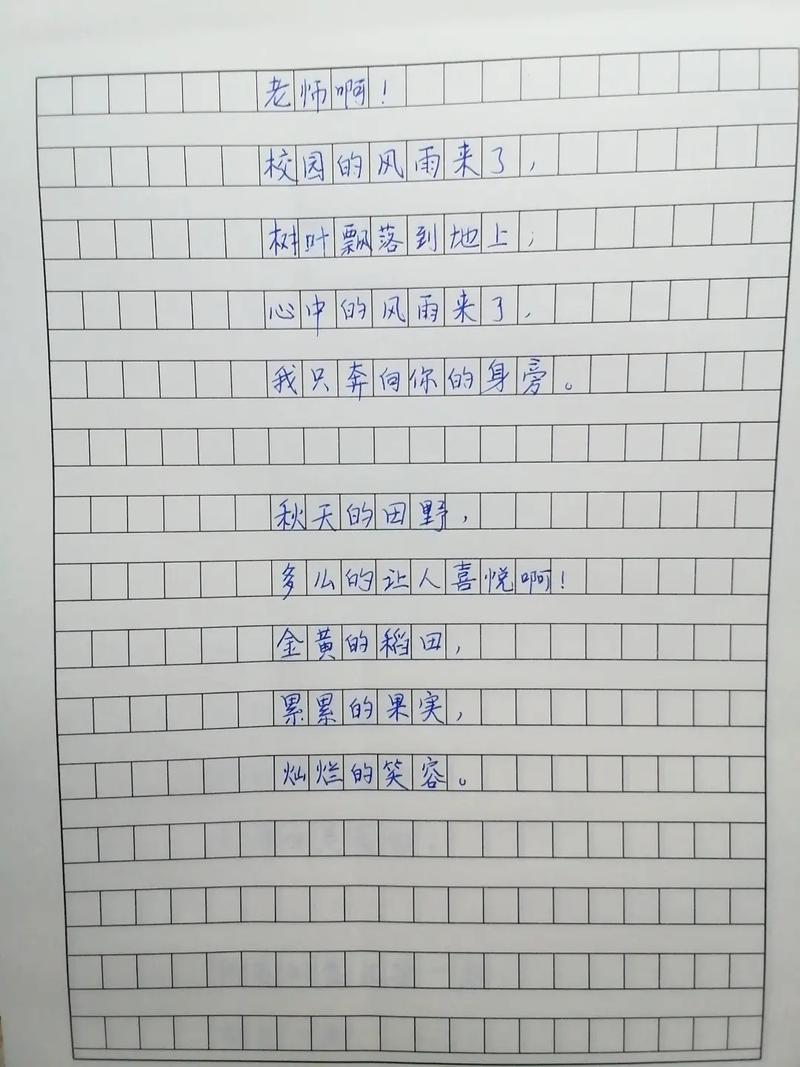 老师啊！
校园的风雨来了，
树叶飘落到地上；
心中的风雨来了，
我只奔向你的身旁。
秋天的田野，
多么的让人喜悦啊！
金黄的稻田，
累累的果实，
灿烂的笑容。